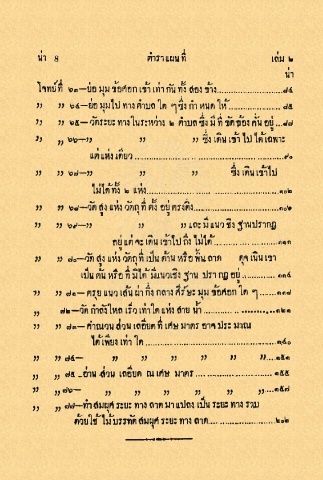 น่า ๘ ตำราแผนที่ เล่ม ๒
น่า
โจทย์ที่ ๖๓—ย่อ มุม ข้อศอก เข้า เท่า กัน ทั้ง สอง ข้าง ๘๔
„ „ ๖๔—ย่อ มุม ไป ทาง ตำบล ใด ๆ ซึ่ง กำ หนด ให้ ๘๕
„ „ ๖๕—วัด ระยะ ทาง ในระหว่าง ๒ ตำบล ซึ่ง มี ที่ ขัด ข้อง คั่น อยู่ ๘๗
„ „ ๖๖— „ „ „ ซึ่ง เดิน เข้า ไป ได้ เฉพาะ
แต่ แห่ง เดียว ๙๐
„ „ ๖๗— „ „ „ ซึ่ง เดิน เข้า ไป
ไม่ได้ ทั้ง ๒ แห่ง ๑๐๒
„ „ ๖๘—วัด สูง แห่ง วัถถุ ที่ ตั้ง อยู่ ตรงดิ่ง ๑๐๒
„ „ ๖๙— „ „ „ และ มี แนว ซึง ฐาน ปรากฏ
อยู่ แต่ จะ เดิน เข้า ไป ถึง ไม่ ได้ ๑๑๑
„ „ ๗๐—วัด สูง แห่ง วัถถุ ที่ เป็น ด้าน หรือ พื้น ลาด ดุจ เนิน เขา
เป็น ต้น หรือ ที่ มิ ได้ มี แนว ซึง ฐาน ปรา กฏ อยู่ ๑๑๔
„ „ ๗๑—ครุย แนว เส้น ผ่า กึ่ง กลาง ศีร์ษะ มุม ข้อศอก ใด ๆ ๑๑๘
„ ๗๒—วัด กำลัง ไหล เร็ว เท่า ใด แห่ง สาย น้ำ ๑๒๑
„ „ ๗๓—คำนวน ส่วน เลอียด ที่ เศษ มาตร อาจ ประ มาณ
ได้ เพียง เท่า ใด ๑๔๐
„ „ ๗๔— „ „ „ „ ๑๕๑
„ „ ๗๕—อ่าน ส่วน เลอียด ณ เศษ มาตร ๑๕๕
„ „ ๗๖— „ „ „ „ ๑๕๗
„ „ ๗๗—ทำ สมผุศ ระยะ ทาง ลาด มา แปลง เป็น ระยะ ทาง ราบ
ด้วย ใช้ ไม้ บรรทัด สมผุศ ระยะ ทาง ลาด ๒๐๒